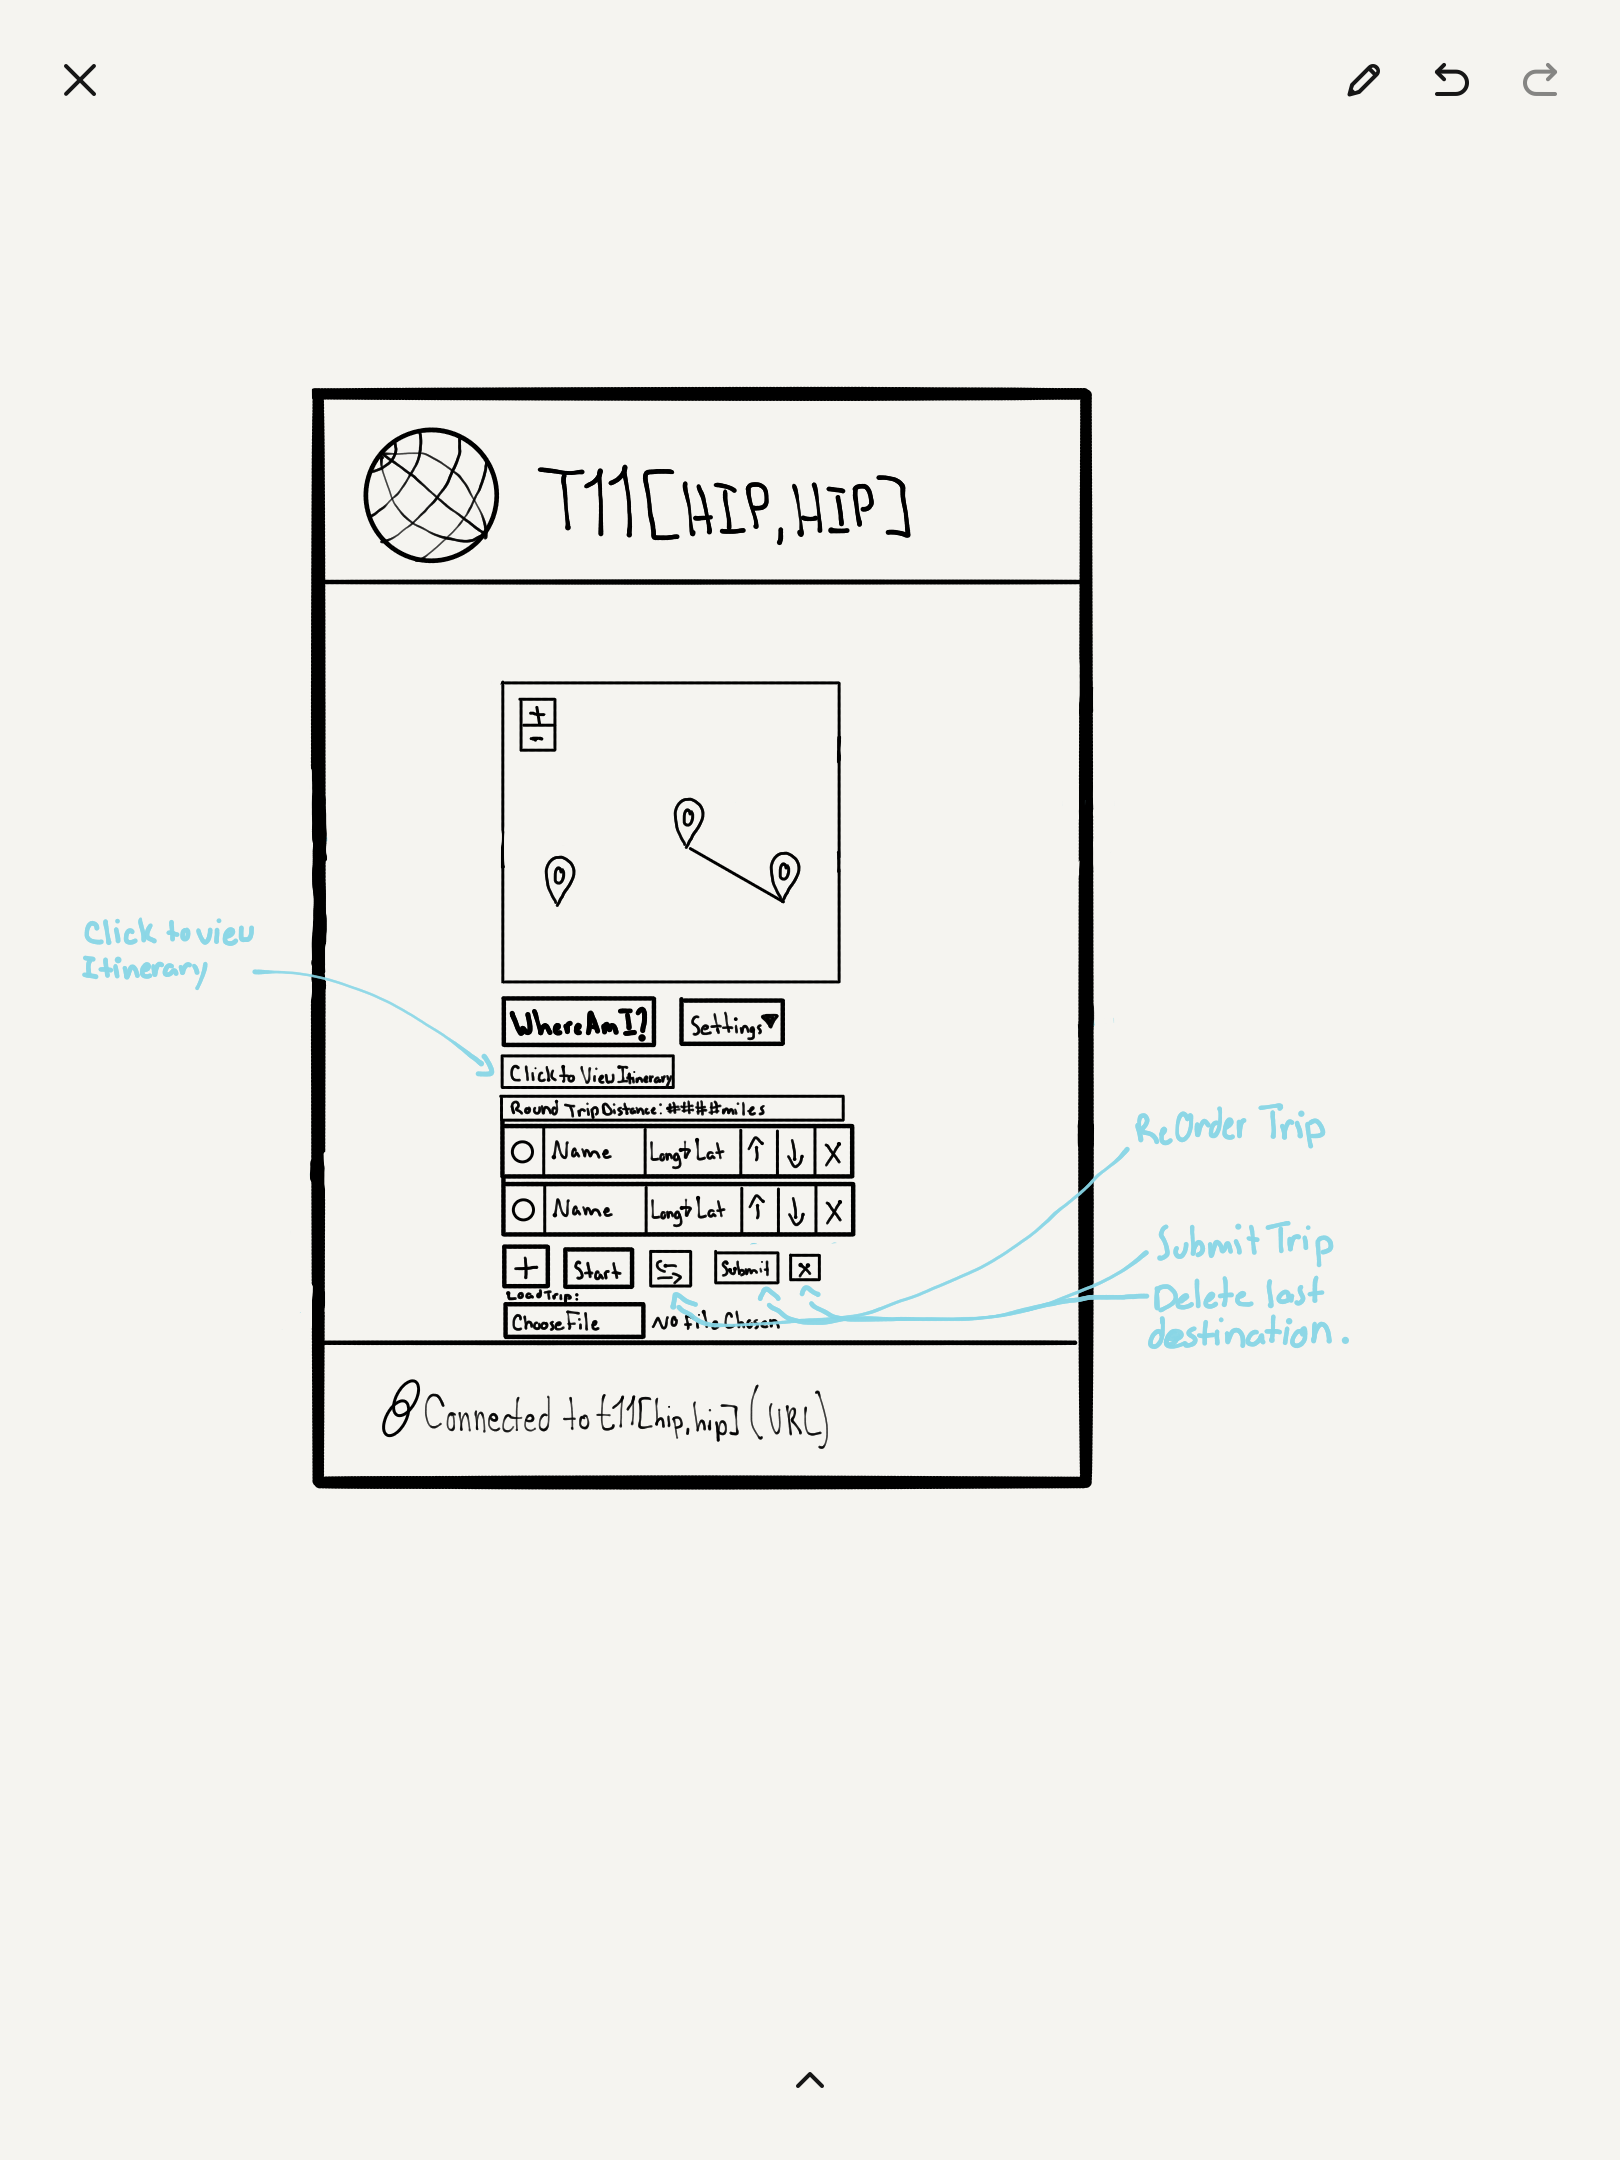 T11[HIP,HIP]
+
-
Click to view
Itinerary
Where Am I? Settings
Click to View Itinerary
Round Trip Distance: ####miles
Name Long+Lat ↑ ↓ X
Name Long+Lat ↑ ↓ X
+ Start Submit x
Load Trip:
Choose File No File Chosen
ReOrder Trip
Submit Trip
Delete last
destination.
Connected to t11[hip,hip] (URL)